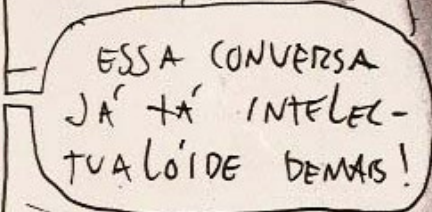 ESSA CONVERSA
JÁ TÁ INTELEC-
TUALÓIDE DEMAIS!